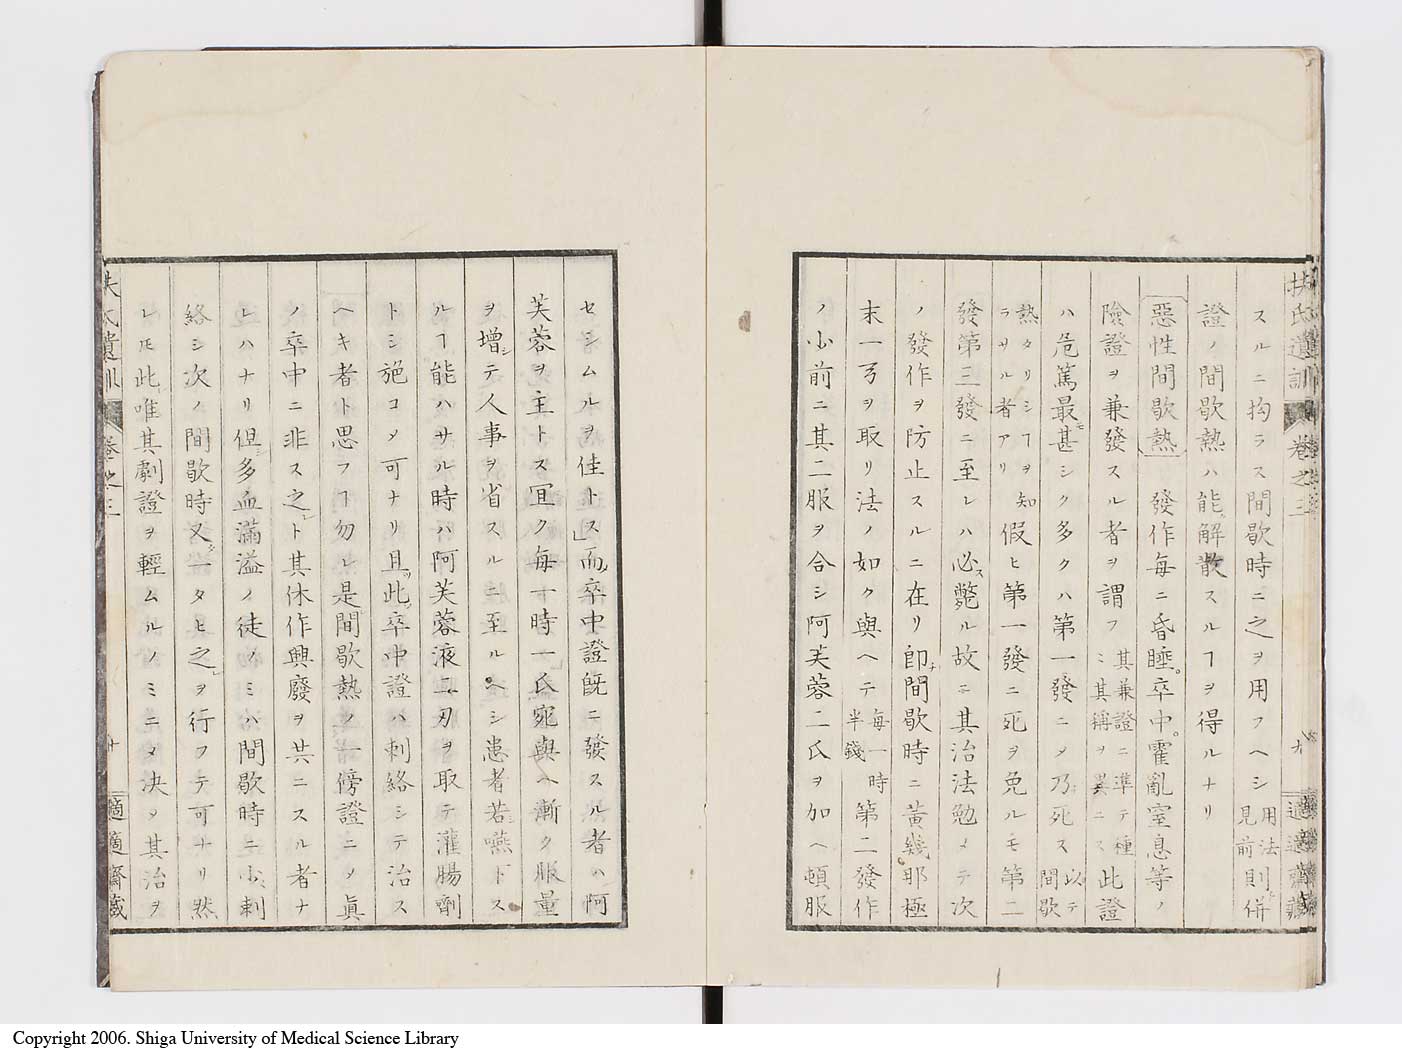 扶氏遺訓 卷之三 九 適適齋藏
スルニ拘ラス間歇時ニ之ヲ用フヘシ用法則併見前
證ノ間歇熱ハ能解散スルヿヲ得ルナリ
惡性間歇熱 發作毎ニ昏睡。卒中。霍亂窒息等ノ
險證ヲ兼發スル者ヲ謂フ其兼證ニ準テ種ミ其稱ヲ異ニス此證
ハ危篤最モ甚シク多クハ第一發ニメ乃死ス以テ間歇
熱タリシヿヲ知ラサル者アリ假ヒ第一發ニ死ヲ免ルモ第二
發第三發ニ至レハ必ス斃ル故ニ其治法勉メテ次
ノ發作ヲ防止スルニ在リ卽チ間歇時ニ黃幾那極
末一弓ヲ取リ法ノ如ク與ヘテ毎一時半錢第二發作
ノ小前ニ其二服ヲ合シ阿芙蓉二氏ヲ加ヘ頓服
セシムルヲ佳トス」而ノ卒中證既ニ發スル者ハ阿
芙蓉ヲ主トス冝ク毎一時一氏宛與ヘ漸ク服量
ヲ增シテ人事ヲ省スルニ至ルヘシ患者若シ嚥下ス
ルヿ能ハサル時ハ阿芙蓉液二刃ヲ取テ灌腸劑
トシ施コメ可ナリ且ツ此卒中證ハ刺絡シテ治ス
ヘキ者ト思フヿ勿レ是間歇熱ノ一傍證ニメ眞
ノ卒中ニ非ス之ト其休作興廢ヲ共ニスル者ナ
レハナリ但多血滿溢ノ徒ノミハ間歇時ニ小刺
絡シ次ノ間歇時又一タヒ之ヲ行フテ可ナリ然
レ𪜈此唯其劇證ヲ輕ムルノミニメ決ヲ其治ヲ
扶氏遺訓 卷之三 十 適適齋藏
Copyright 2006. Shiga University of Medical Science Library